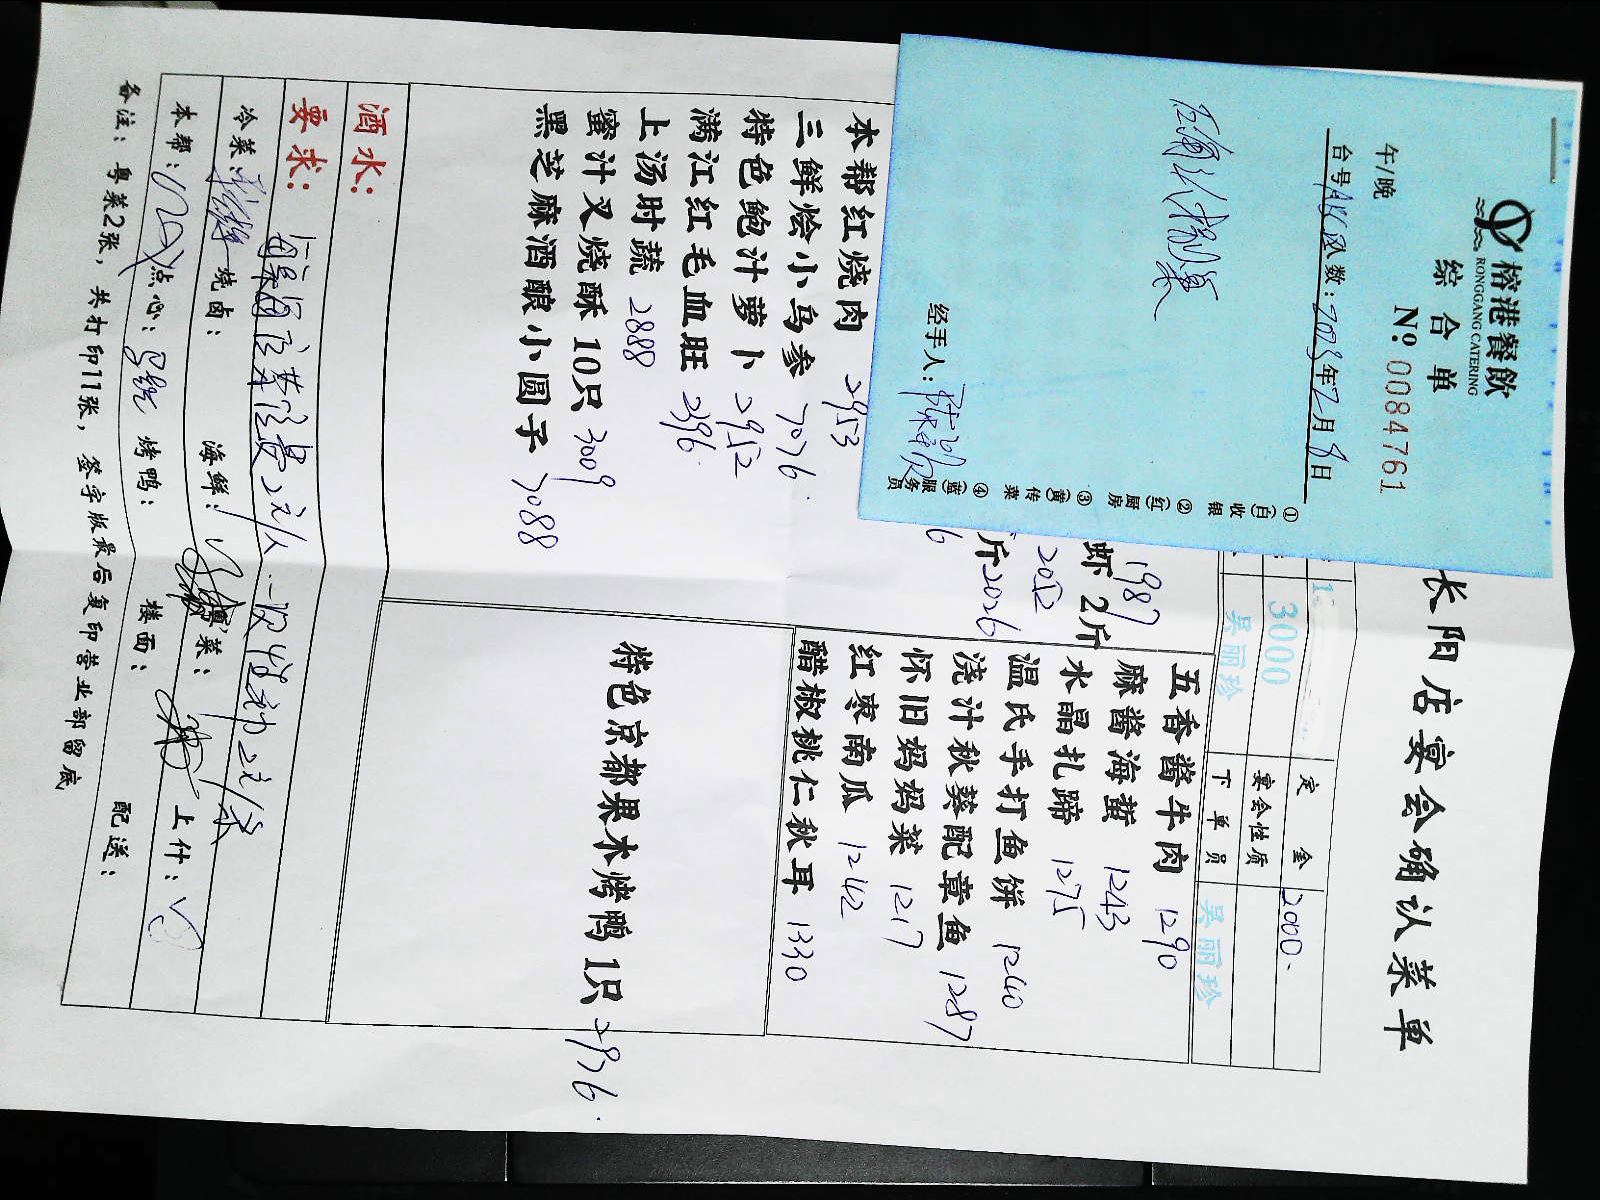 榕港餐飲
RONGGANG CATERING
综合单
№ 0084761
午/晚
数：2023年2月8日
经手人：
①(白)收银
②(红)厨房
③(黄)传菜
④(蓝)服务员
长阳店宴会确认菜单
定金 2000.
3000 宴会性质
吴丽珍 下单员 吴丽珍
1987
虾 2斤
2052
斤 2026
6
本帮红烧肉 2953
三鲜烩小乌参 7076.
特色鲍汁萝卜 2952
满江红毛血旺 2396.
上汤时蔬 2888
蜜汁叉烧酥 10只 3009
黑芝麻酒酿小圆子 7088
五香酱牛肉 1290
麻酱海蜇 1243
水晶扎蹄 1275
温氏手打鱼饼 1240
浇汁秋葵配章鱼 1287
怀旧妈妈菜 1217
红枣南瓜 1242
醋椒桃仁秋耳 1330
特色京都果木烤鸭 1只 2976.
酒水：
要求：
冷菜： 烧卤： 海鲜： 菜： 上什：
本帮： 点心： 烤鸭： 楼面： 配送：
备注：粤菜2张，共打印11张，签字版最后复印营业部留底